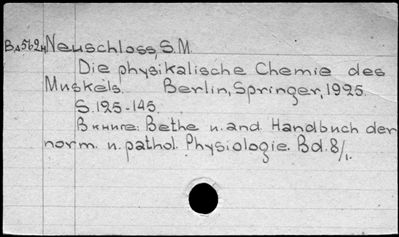 Ba562н Neuschloss, S.M.
Die physikalische Chemie des
Muskels. Berlin, Springer, 1925.
S. 125-145.
В книге: Bethe u. and. Handbuch der
norm. u. pathol. Physiologie. Bd. 8/1.